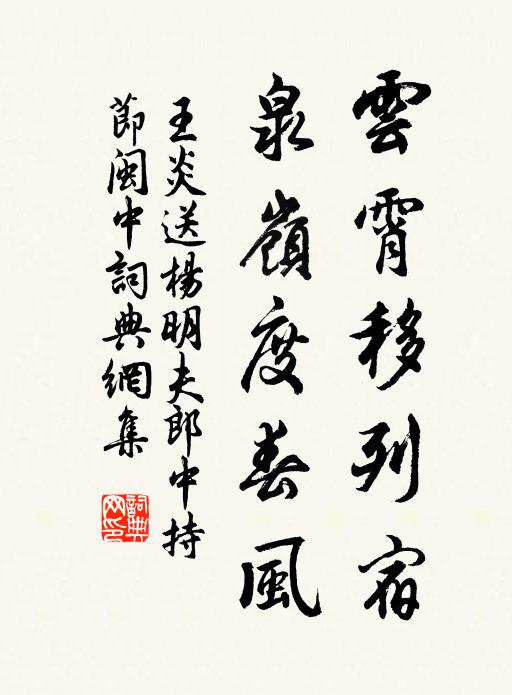 雲霄移列宿
泉嶺度春風
王炎送楊明夫郎中持
節閩中詞典網集
詞典網印